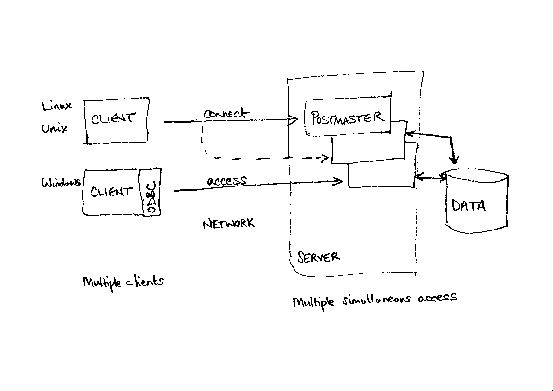 Linux
Unix
CLIENT
connect
POSTMASTER
Windows
CLIENT
ODBC
access
DATA
NETWORK
SERVER
Multiple clients
Multiple simultaneous access